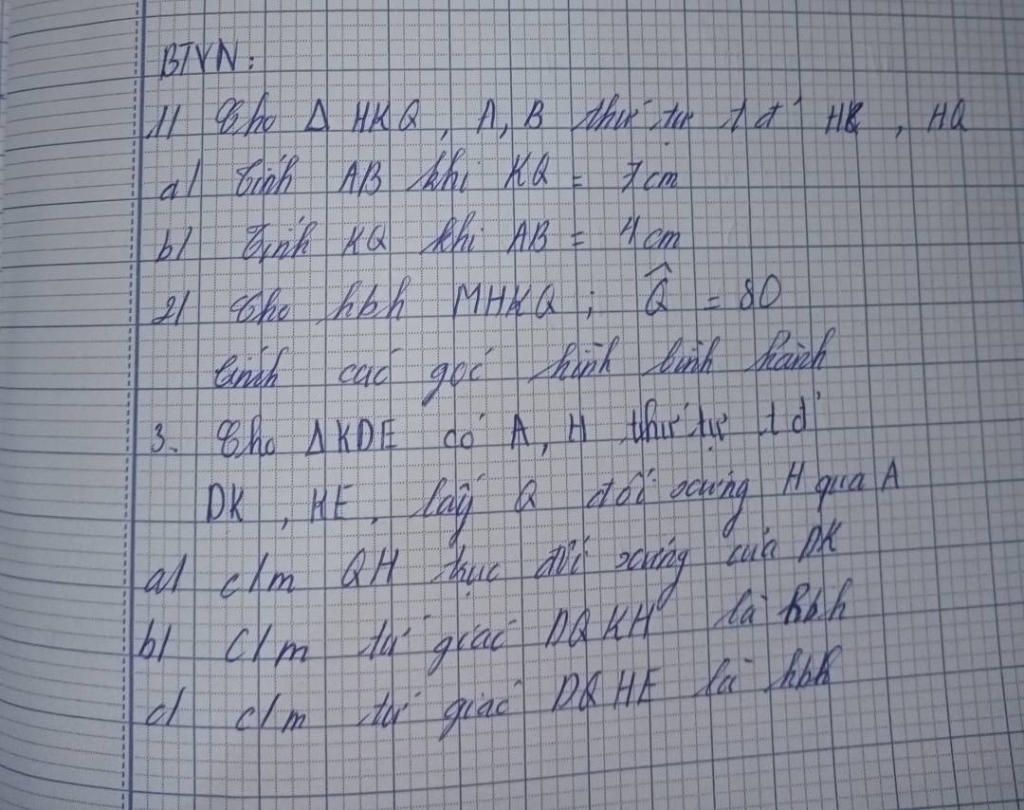 BTVN:
1/ Cho Δ HKQ, A, B thứ tự t đ' HK, HQ
a/ Tính AB khi KQ = 7cm
b/ Tính KQ khi AB = 4cm
2/ Cho hbh MHKQ; Q̂ = 80
tính các góc hình bình hành
3. Cho ΔKDE có A, H thứ tự t đ'
DK, HE, lấy Q đối xứng H qua A
a/ c/m QH trục đối xứng của DK
b/ C/m tứ giác DQKH là hbh
c/ c/m tứ giác DQHE là hbh